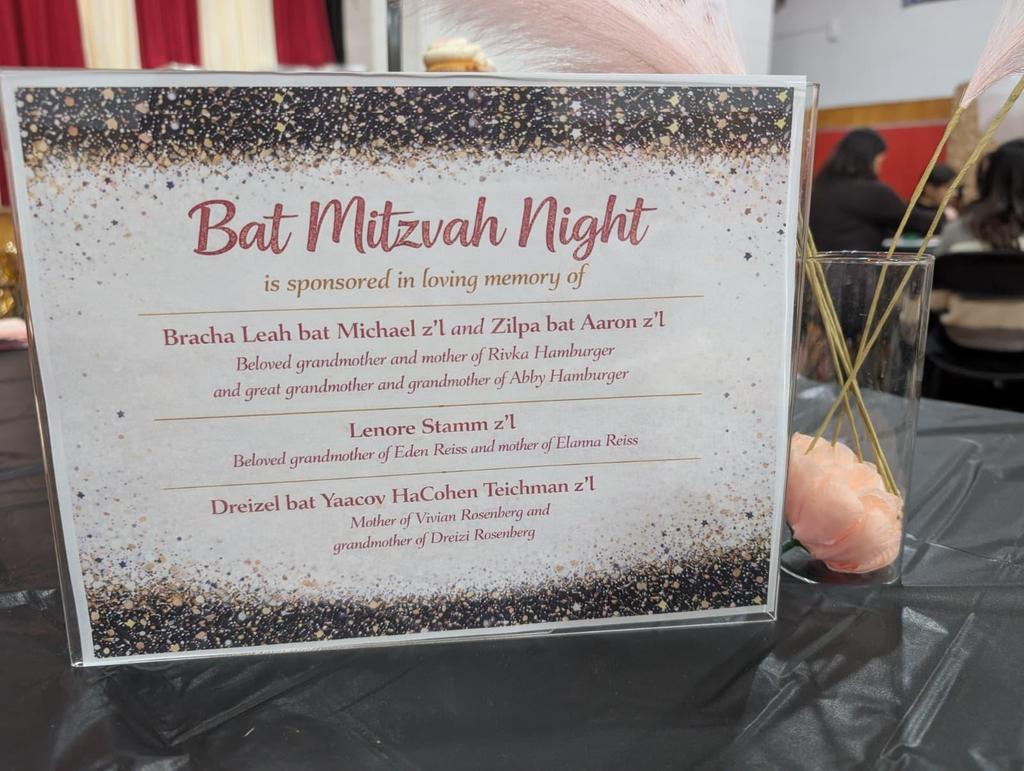 Bat Mitzvah Night
is sponsored in loving memory of
Bracha Leah bat Michael z'l and Zilpa bat Aaron z'l
Beloved grandmother and mother of Rivka Hamburger
and great grandmother and grandmother of Abby Hamburger
Lenore Stamm z'l
Beloved grandmother of Eden Reiss and mother of Elanna Reiss
Dreizel bat Yaacov HaCohen Teichman z'l
Mother of Vivian Rosenberg and
grandmother of Dreizi Rosenberg